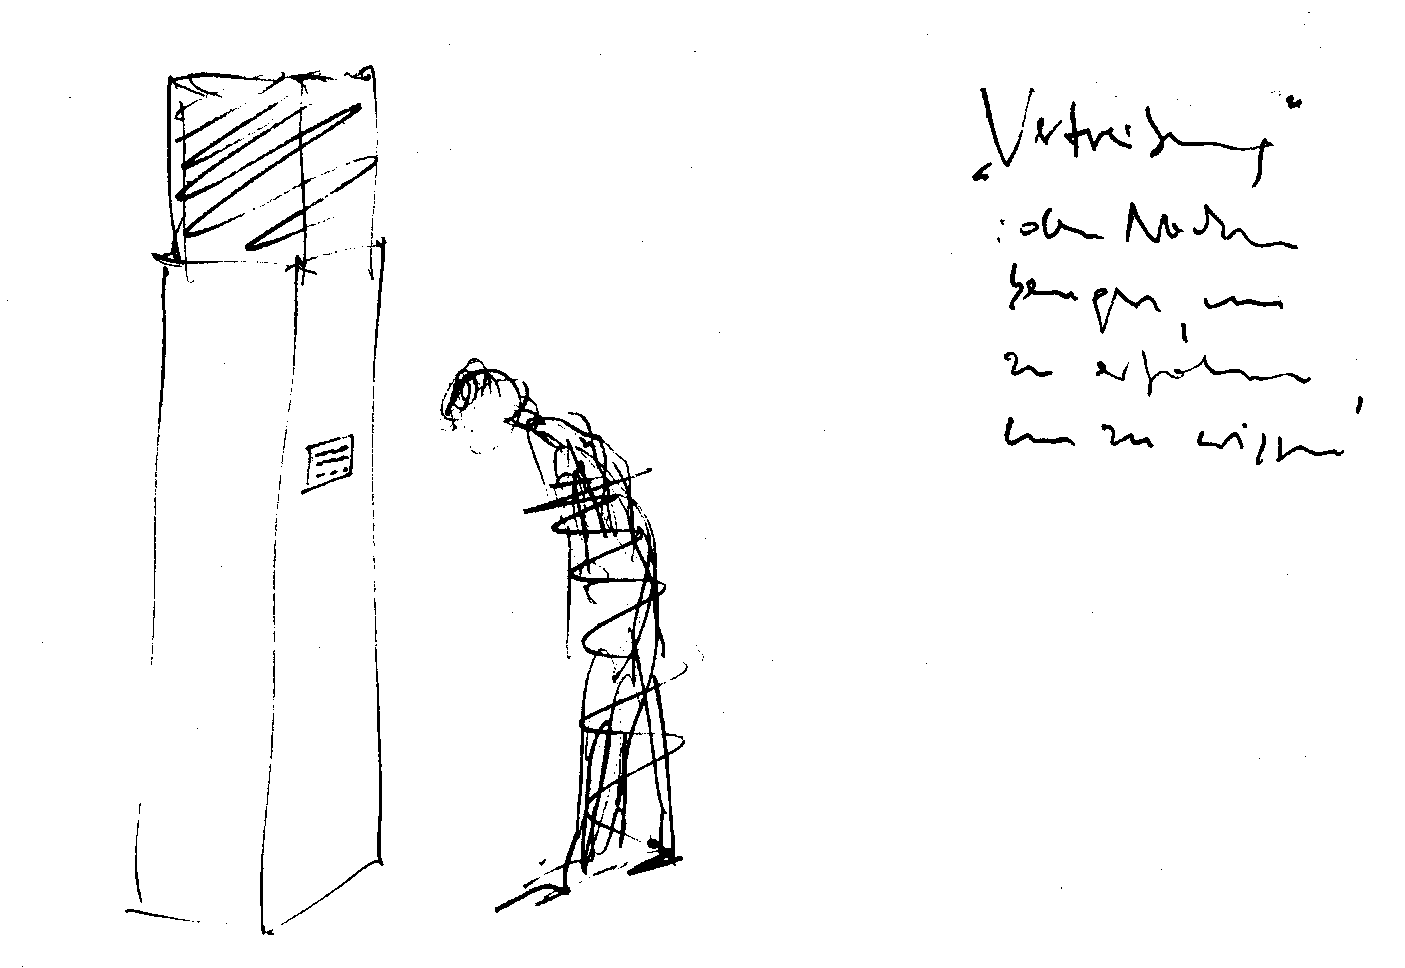 „Vertreibung“
: den Nacken
beugen, um
zu erfahren,
um zu wissen